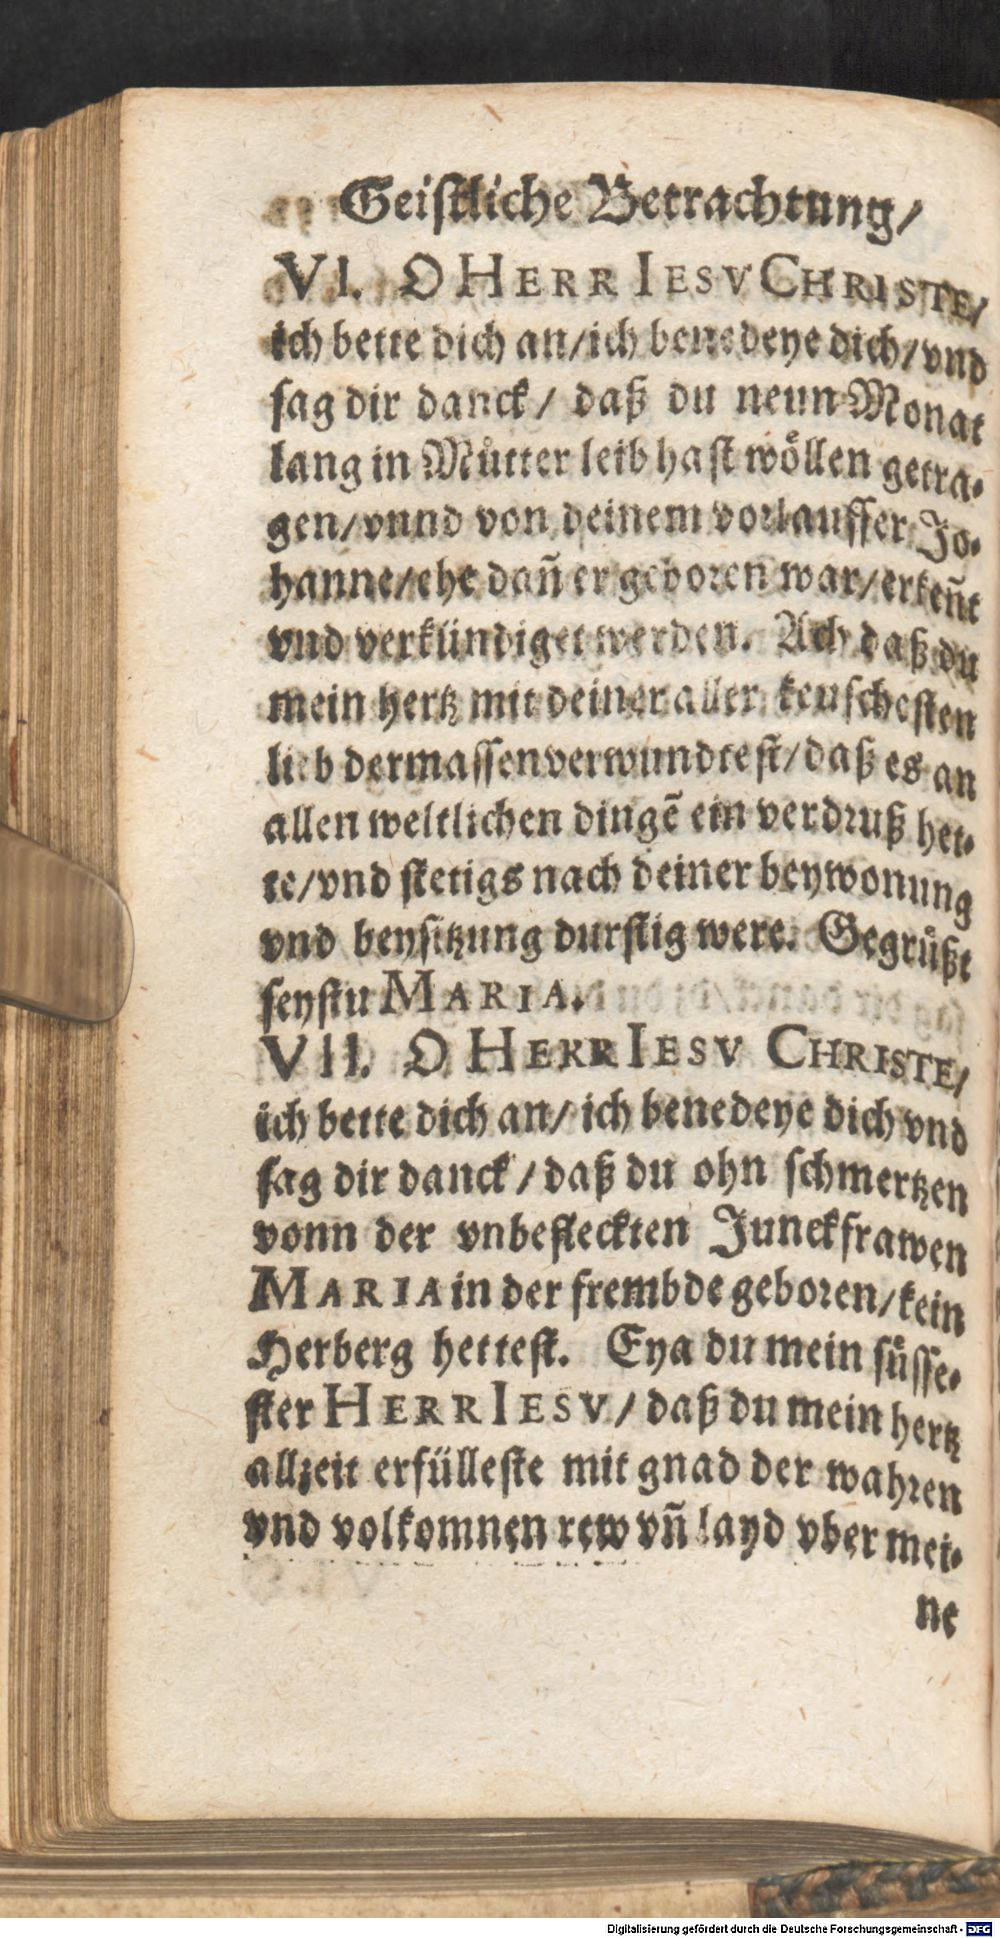 Geiſtliche Betrachtung/
VI. O HERR IESV CHRISTE/
ich bette dich an/ich benedeye dich/vnd
ſag dir danck/ daß du neun Monat
lang in Muͤtter leib haſt woͤllen getra⸗
gen/vnnd von deinem vorlauffer Jo⸗
hanne/ehe dañ er geboren war/erkeñt
vnd verkündiget werden. Ach daß du
mein hertz mit deiner aller keuſcheſten
lieb dermaſſen verwundteſt/daß es an
allen weltlichen dingẽ ein verdruß het⸗
te/vnd ſtetigs nach deiner beywonung
vnd beyſitzung durſtig were. Gegruͤßt
ſeyſtu MARIA.
VII. O HERR IESV CHRISTE/
ich bette dich an/ ich benedeye dich vnd
ſag dir danck/daß du ohn ſchmertzen
vonn der vnbefleckten Junckfrawen
MARIA in der frembde geboren/kein
Herberg hetteſt. Eya du mein ſuͤſſe⸗
ſter HERR IESV/daß du mein hertz
allzeit erfülleſte mit gnad der wahren
vnd volkomnen rew vñ layd vber mei⸗
ne
Digitalisierung gefördert durch die Deutsche Forschungsgemeinschaft - DFG